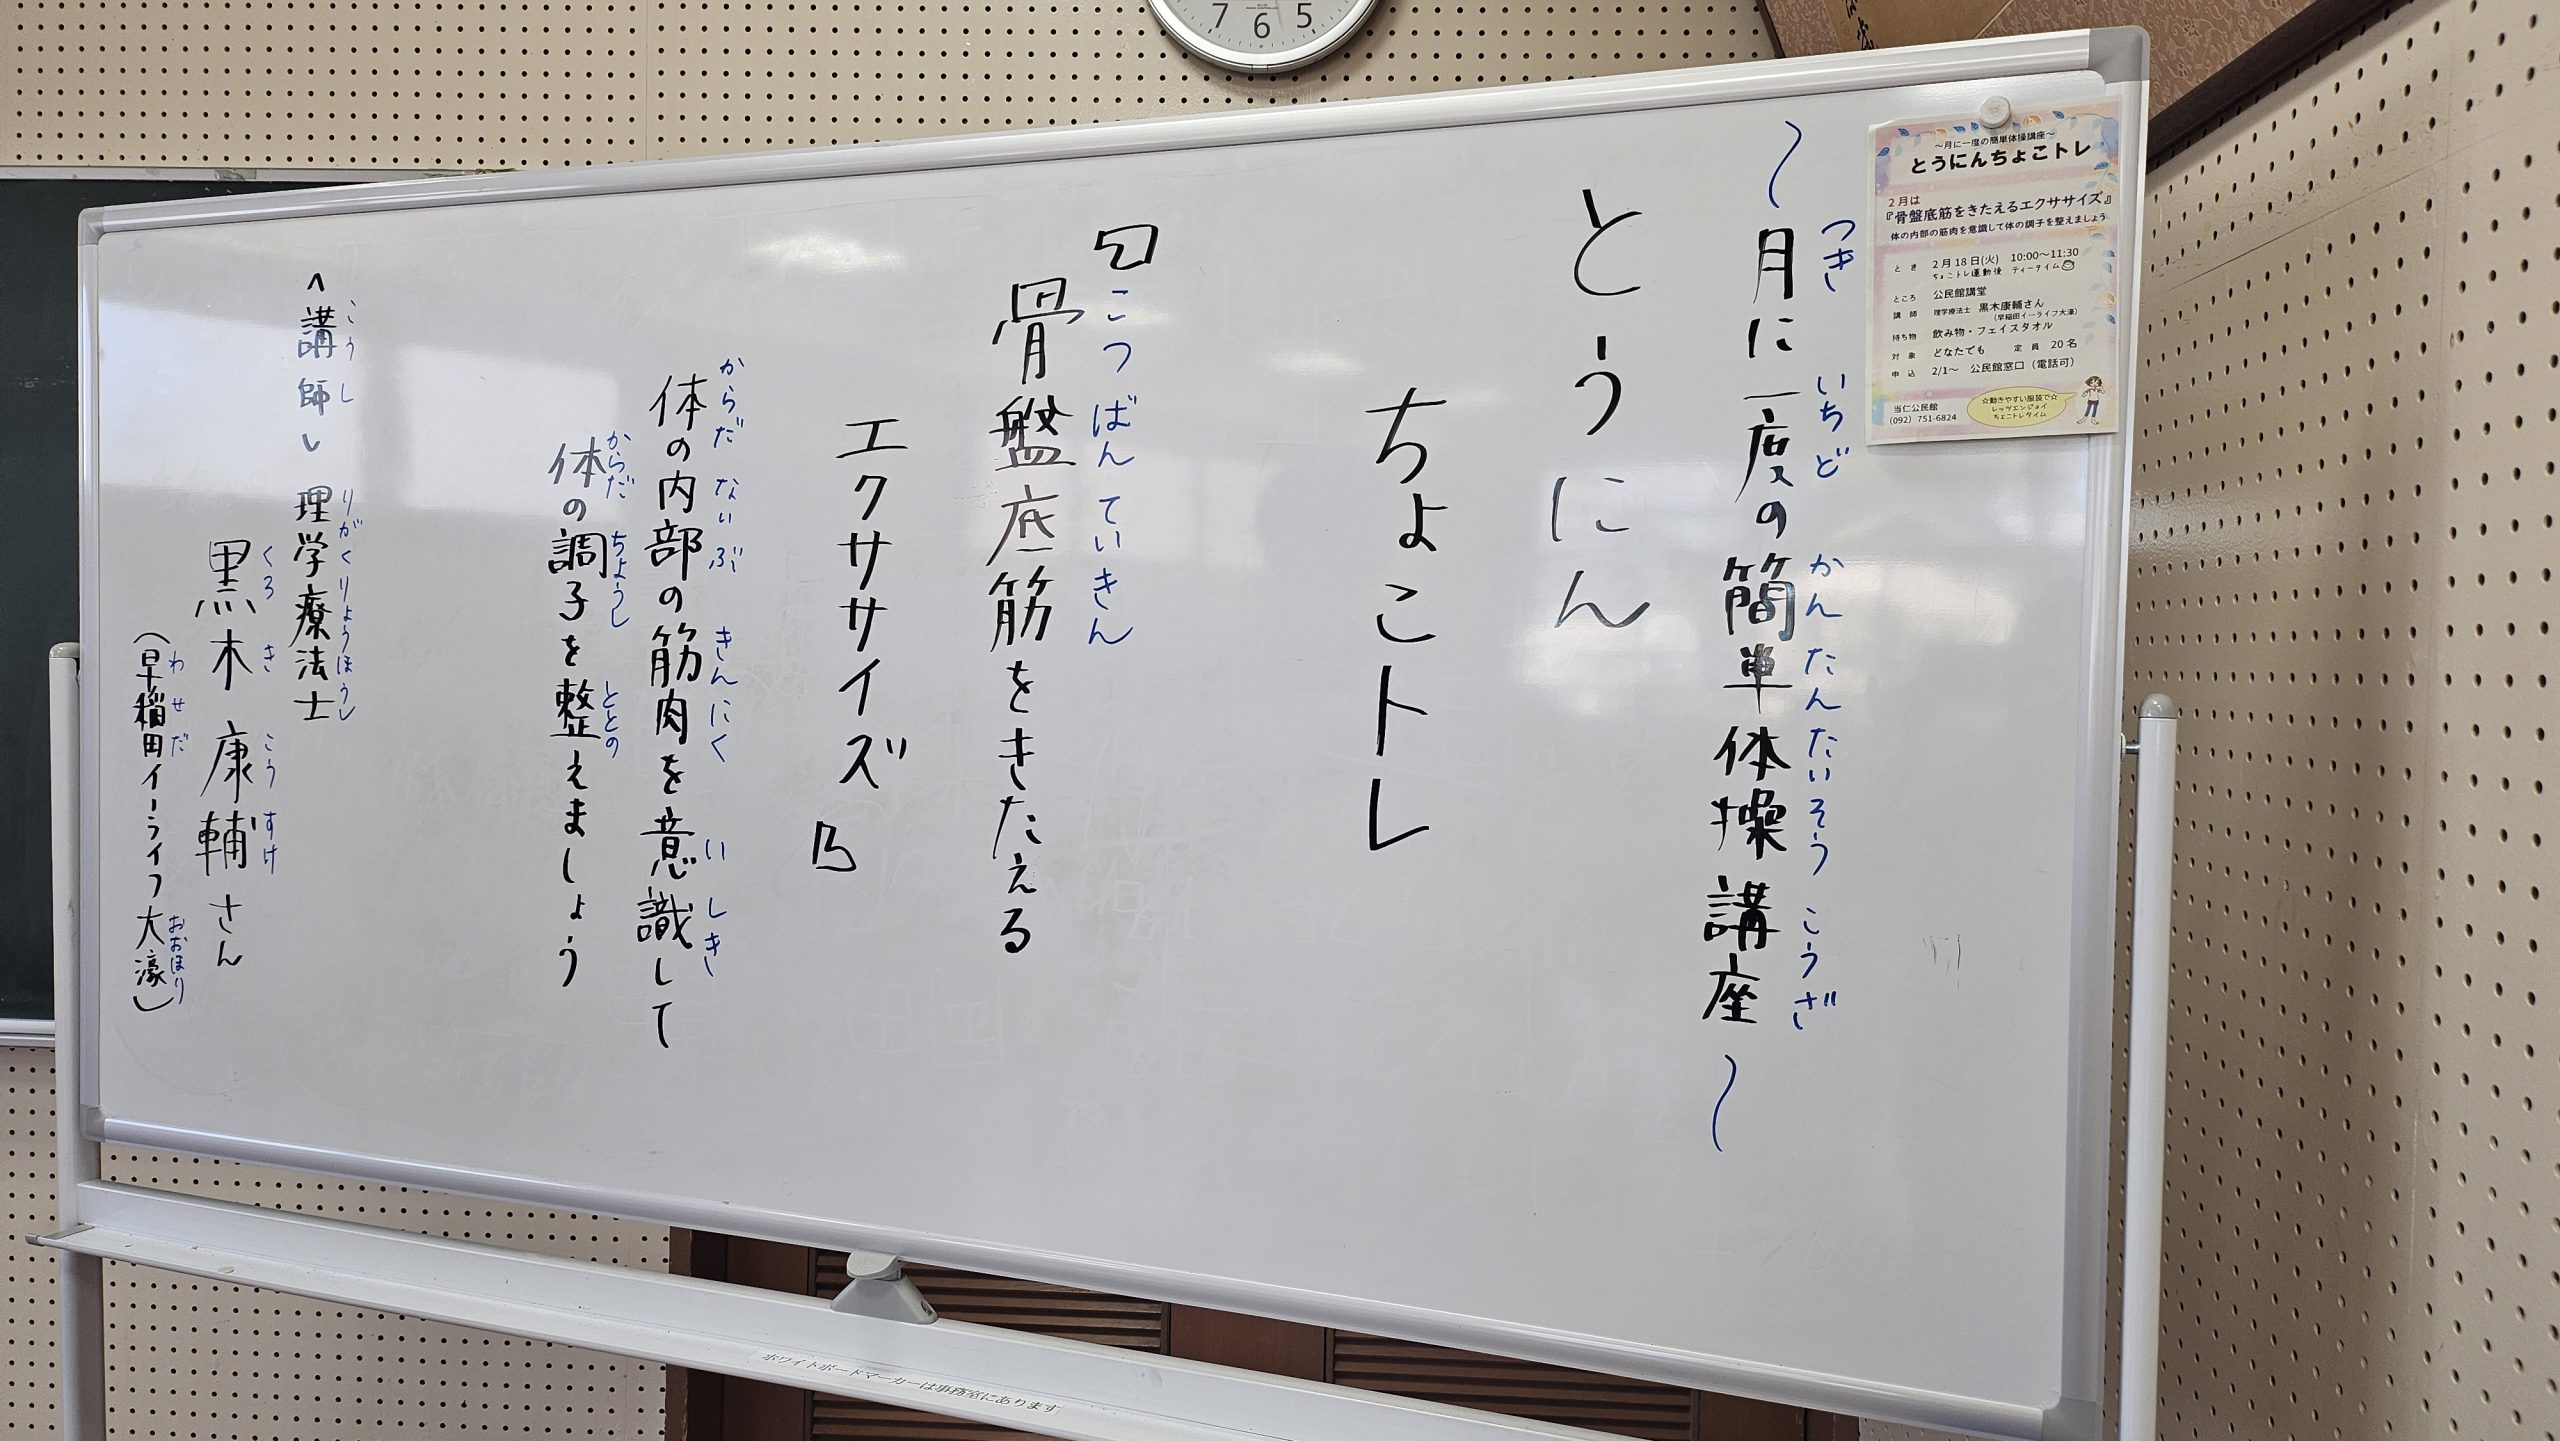 ～月に一度の簡単体操講座～
つき いちど かんたんたいそう こうざ
とうにん
ちょこトレ
『骨盤底筋をきたえる
こつばんていきん
エクササイズ』
体の内部の筋肉を意識して
からだ ないぶ きんにく いしき
体の調子を整えましょう
からだ ちょうし ととの
<講師> 理学療法士
こうし りがくりょうほうし
黒木 康輔さん
くろき こうすけ
(早稲田イーライフ大濠)
わせだ おおほり
～月に一度の簡単体操講座～
とうにんちょこトレ
2月は
『骨盤底筋をきたえるエクササイズ』
体の内部の筋肉を意識して体の調子を整えましょう
とき 2月18日(火) 10:00～11:30
ちょこトレ運動後 ティータイム
ところ 公民館講堂
講師 理学療法士 黒木康輔さん
(早稲田イーライフ大濠)
持ち物 飲み物・フェイスタオル
対象 どなたでも 定員 20名
申込 2/1～ 公民館窓口（電話可）
☆動きやすい服装で☆
レッツエンジョイ
ちょこトレタイム
当仁公民館
(092) 751-6824
7 6 5
ホワイトボードマーカーは事務室にあります